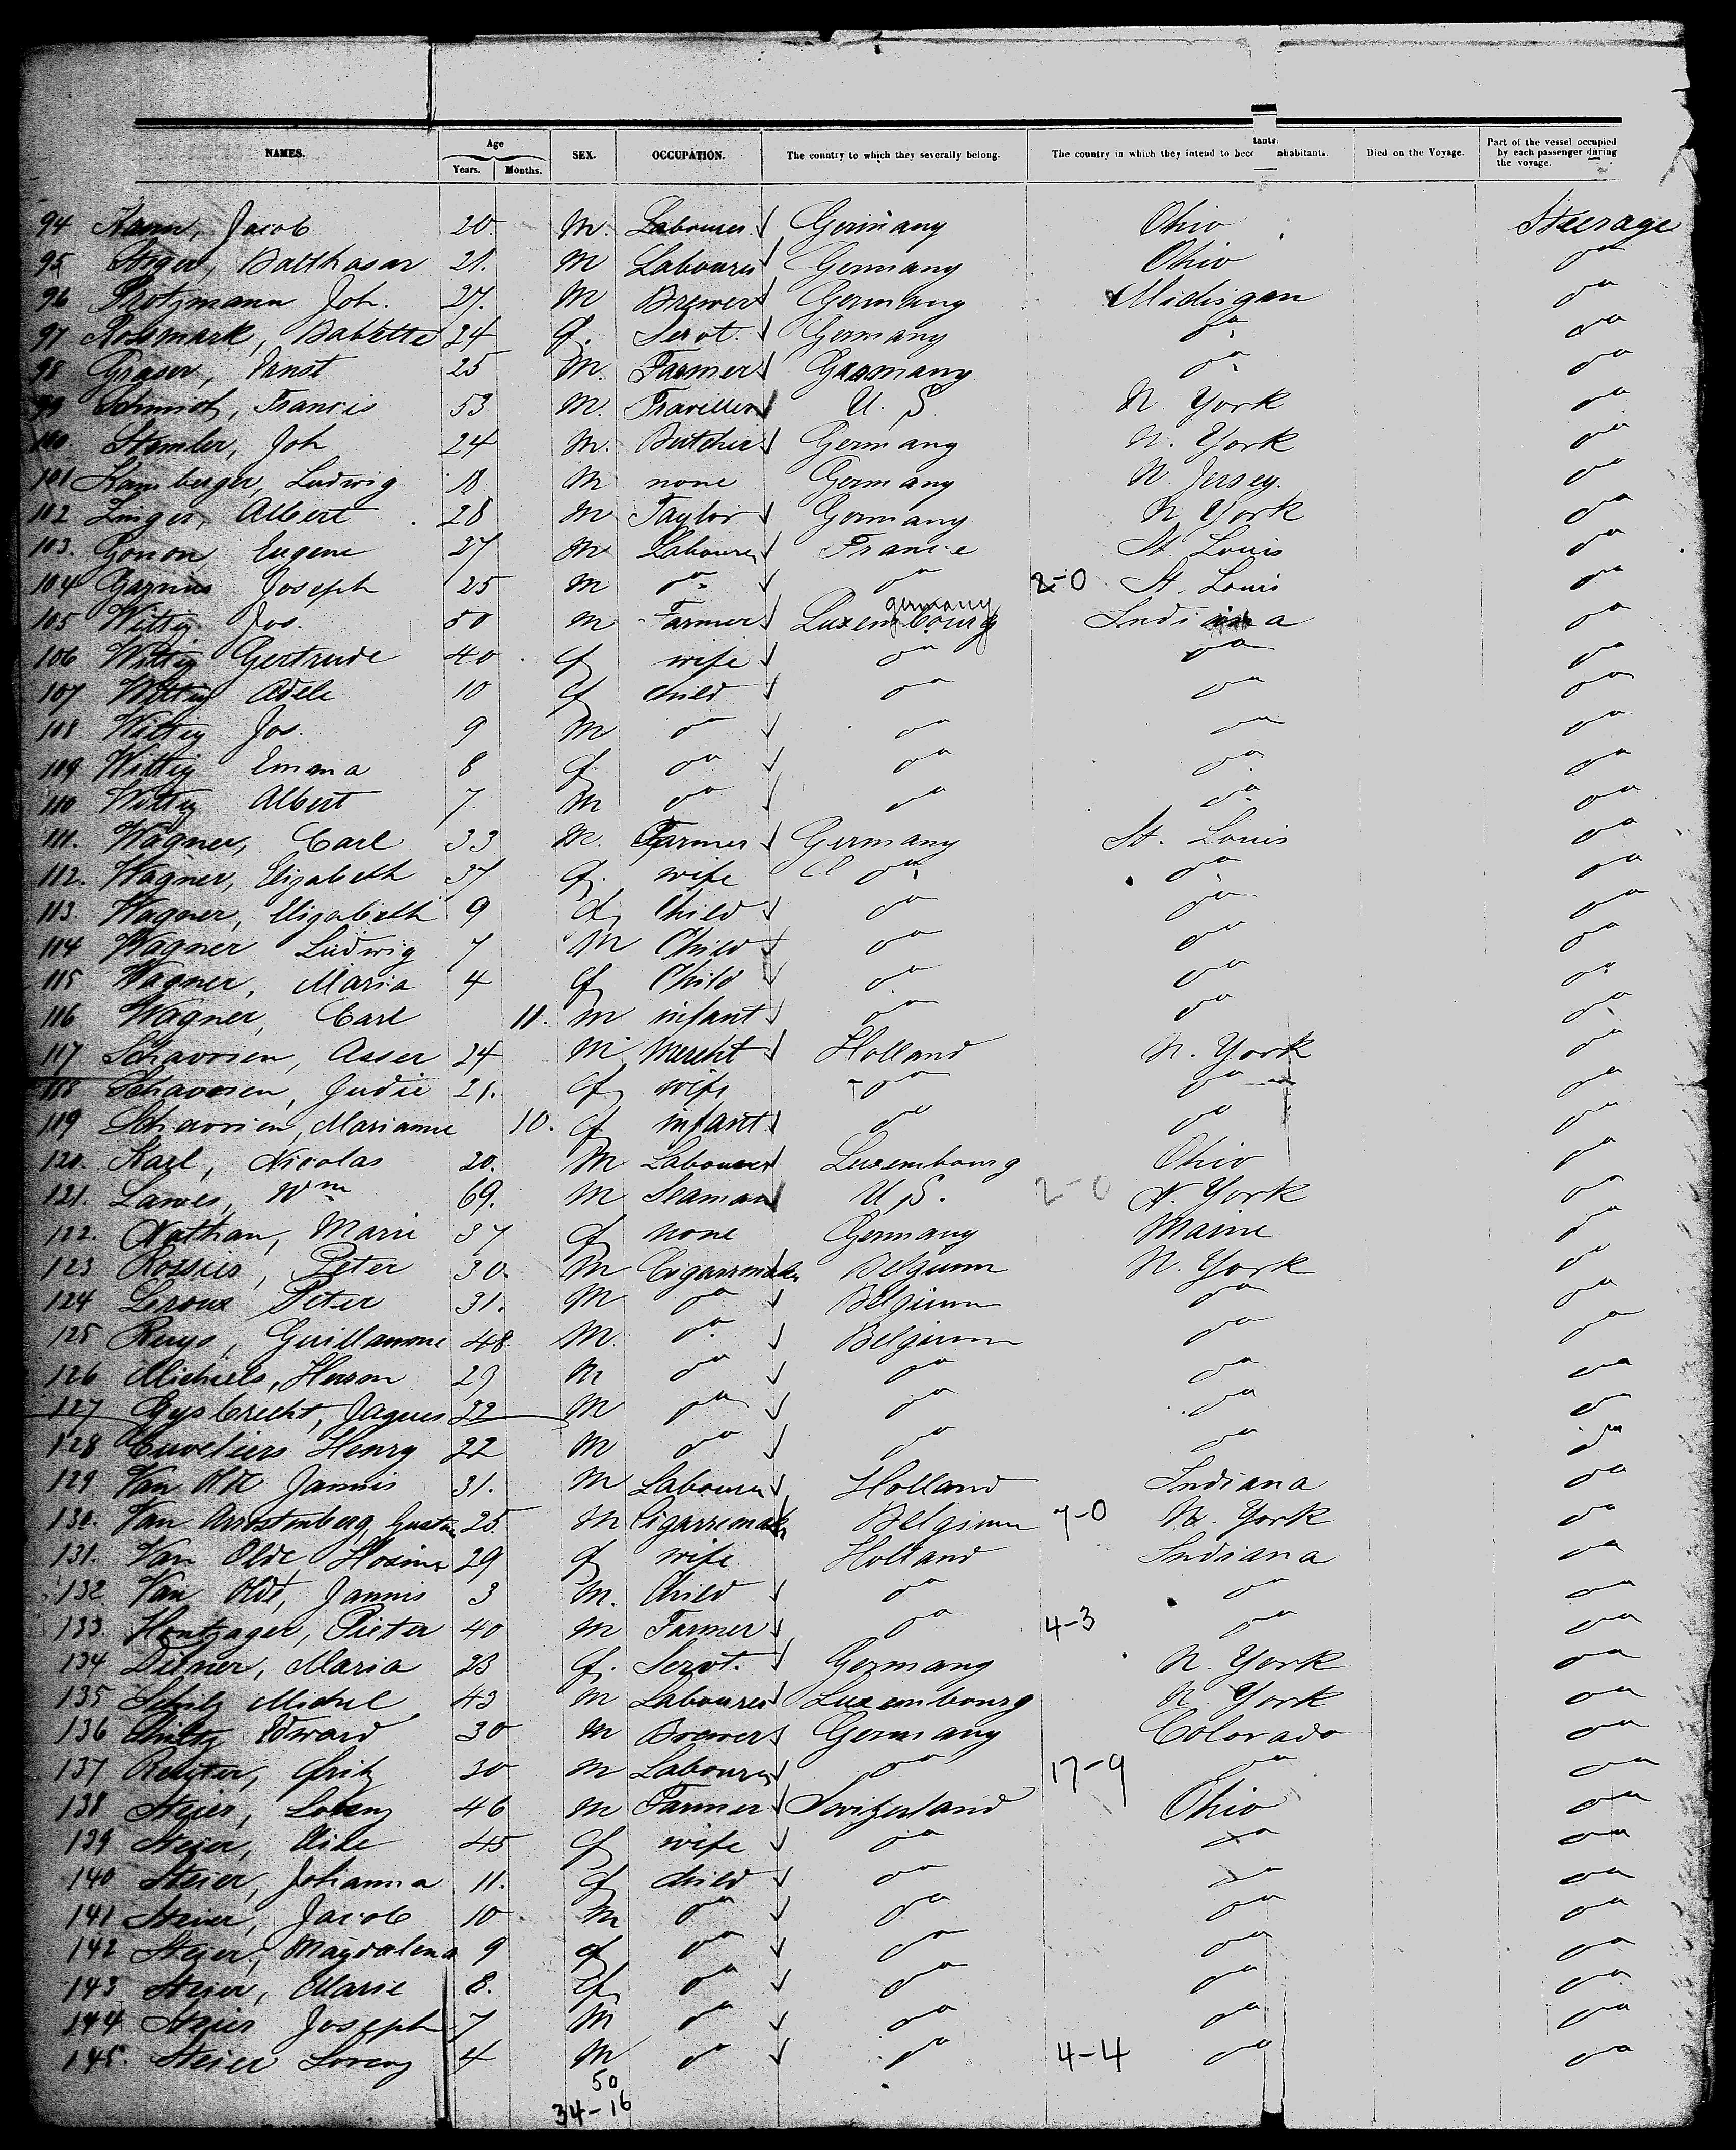 NAMES. Age Years. Months. SEX. OCCUPATION. The country to which they severally belong. The country in which they intend to beco tants. nhabitants. Died on the Voyage. Part of the vessel occupied by each passenger during the voyage.
94 Jacob 20. M. Labourer Germany Ohio Steerage
95 Balthasar 21. M Labourer Germany Ohio do
96 Protzmann Joh. 27. M Brewer Germany Michigan do
97 Rossmark, Babette 24 f. Servt. Germany do do
98 Graser, Ernst 25 M. Farmer Germany do do
99 Schmidt, Francis 53 M. Traveller U. S. N. York do
100. Stemler, Joh 24 M. Butcher Germany N. York do
101 Kamberger, Ludwig 18 M none Germany N. Jersey. do
112 Zinger, Albert 28 M Taylor Germany N. York do
103. Gonon, Eugene 27 M Labourer France St. Louis do
104 Joseph 25 M do do 2-0 St. Louis do
105 Wittig Jos. 50 M Farmer Luxembourg germany Indiana do
106 Wittig Gertrude 40 f wife do do do
107 Wittig Adele 10 f child do do do
108 Wittig Jos. 9 M do do do do
109 Wittig Emma 8 f do do do do
110 Wittig Albert 7. M do do do do
111. Wagner, Carl 33 M. Farmer Germany St. Louis do
112. Wagner, Elizabeth 37 f. wife do do do
113. Wagner, Elizabeth 9 f Child do do do
114 Wagner Ludwig 7 M Child do do do
115 Wagner, Maria 4 f Child do do do
116 Wagner, Carl 11. M infant do do do
117 Schavrien, Asser 24 M Mercht Holland N. York do
118 Schavrien, Judie 21. f wife do do do
119 Schavrien, Marianne 10. f infant do do do
120. Karl, Nicolas 20. M Labourer Luxembourg Ohio do
121. Lawes, Wm 69. M Seaman U. S. 2-0 N. York do
122. Nathan, Marie 37 f none Germany Maine do
123 Rossies, Peter 30. M Cigarrmaker Belgium N. York do
124 Leroux Peter 31. M do Belgium do do
125 Ruys, Guillaume 48. M. do Belgium do do
126 Michiels, 29 M do do do do
127 Gysbrecht, Jaques 22 M do do do do
128 Cuveliers Henry 22 M do do do do
129 Van Olde Jannis 31. M Labourer Holland Indiana do
130. Van 25. M Cigarremaker Belgium 7-0 N. York do
131. Van Olde, 29 f wife Holland Indiana do
132 Van Olde, Jannis 3 M. Child do do do
133. Hontzager, Pieter 40 M Farmer do 4-3 do do
134 Maria 23 f. Servt. Germany N. York do
135 Michel 43 M Labourer Luxembourg N. York do
136 Edward 30 M Brewer Germany Colorado do
137 Fritz 30 M Labourer do 17-9 do do
138 Steier, Lorenz 46 M Farmer Switzerland Ohio do
139 Steier, 45 f wife do do do
140 Steier, Johanna 11. f child do do do
141 Steier, Jacob 10 M do do do do
142 Steier, Magdalena 9 f do do do do
143 Steier, Marie 8. f do do do do
144 Steier Joseph 7 M do do do do
145. Steier Lorenz 4 M do do 4-4 do do
50
34-16